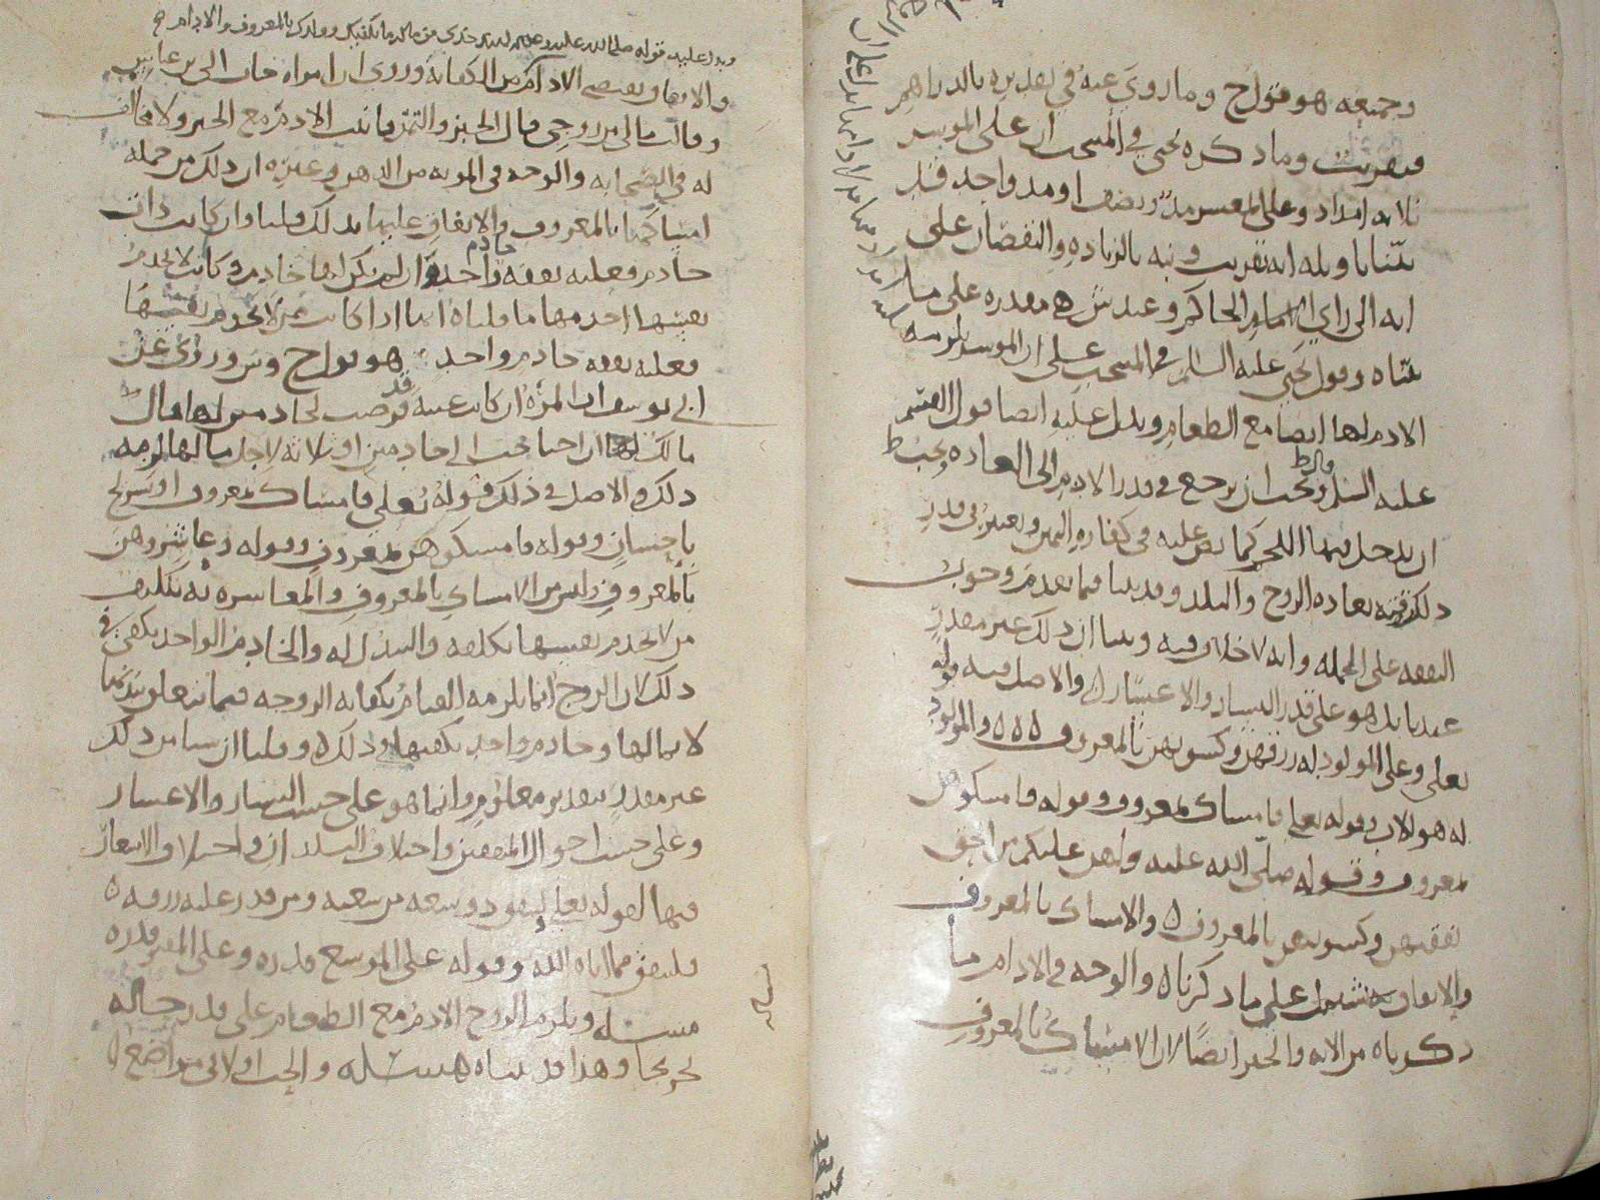 وجميعه هو قول ح وما روي عنه في تقديره بالدراهم
فتقريب وما ذكره يحيى في المنتخب ان على الموسر
ثلاثة امداد وعلى المعسر مد ونصف او مد واحد فقد
بينا تاويله انه تقريب ونبه بالزيادة والنقصان على
انه الى راي الامام والحاكم وعند ش هي مقدرة على ما
بيناه وقول يحيى عليه السلم في المنتخب على ان الموسر يلزمه
الادم لها ايضا مع الطعام ويدل عليه ايضا قول القسم
عليه السلم ويجب ان يرجع في قدر الادم الى العادة
ان يدخل فيها اللحم كما نص عليه في كفارة اليمين ويعتبر في قدر
ذلك بعادة الزوج والبلد وقد بينا فيما تقدم وجوب
النفقة على الجملة وانه لا خلاف فيه وبينا ان ذلك غير مقدر
عندنا بل هو على قدر اليسار والاعسار والاصل فيه قوله
تعلى وعلى المولود له رزقهن وكسوتهن بالمعروف والمولود
له هو الاب وقوله تعلى فامساك بمعروف وقوله فامسكوهن
بمعروف وقوله صلى الله عليه ولهن عليكم من الحق
نفقتهن وكسوتهن بالمعروف والامساك بالمعروف
والانفاق يشتمل على ما ذكرناه والوجه في الادام ما
ذكرناه من الاية والخبر ايضا لان الامساك بالمعروف
ويدل عليه قوله صلى الله عليه وعلى اله لهند خذي من ماله ما يكفيك وولدك بالمعروف والادام
والانفاق يقتضي الادام من الكفاية وروي ان امراة جات الى بن عباس
وقالت مالي من زوجي قال الخبز والتمر فاثبت الادم مع الخبز ولا مخالف
له في الصحابة والوجه في المونة من الدهن وغيره ان ذلك من جملة
امساكها بالمعروف والانفاق عليها بذلك قلنا وان كانت ذات
خادم فعليه نفقة خادم واحد وان لم يكن لها خادم وكانت لا تخدم
نفسها اخدمها ما قلناه انها اذا كانت ممن لا تخدم نفسها
فعليه نفقة خادم واحد هو قول ح وش وروي عن
ابي يوسف ان المراة ان كانت غنية فرض لخادمين لها وقال
مالك ان احتاجت الى خادمين او ثلاثة لاجل مالها لزمه
ذلك والاصل في ذلك قوله تعلى فامساك بمعروف او تسريح
باحسان وقوله فامسكوهن بمعروف وقوله وعاشروهن
بالمعروف وليس من الامساك بالمعروف والمعاشرة به تكليف
من لا تخدم نفسها تكلفه والتبذل له والخادم الواحد يكفي في
ذلك لان الزوج انما يلزمه القيام بكفاية الزوجة فيما يتعلق ببدنها
لا بمالها وخادم واحد يكفيها في ذلك وقلنا ان شيا من ذلك
غير مقدر بتقدير معلوم وانما هو على حسب اليسار والاعسار
وعلى حسب احوال المنفقين واختلاف البلدان واختلاف الاسعار
فيها لقوله تعلى لينفق ذو سعة من سعته ومن قدر عليه رزقه
فلينفق مما اتاه الله وقوله على الموسع قدره وعلى المقتر قدره
مسئلة ويلزم الزوج الادم مع الطعام على قدر حاله
تخريجا وهذا قد بيناه مسئلة والحب اولا في مواضع
مسئلة